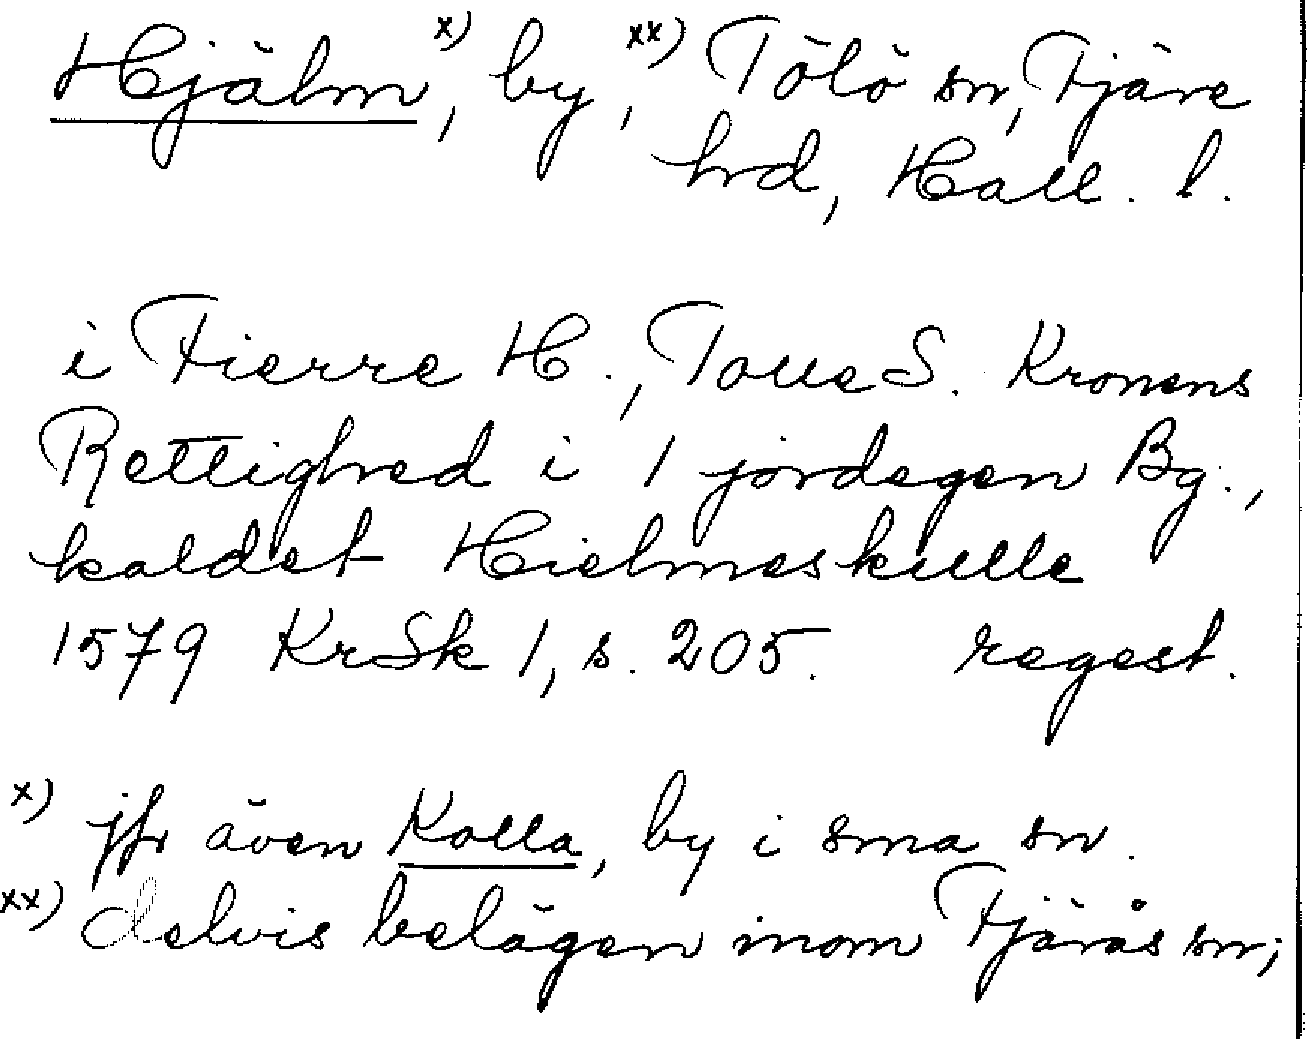 Hjälm x), by, xx) Tölö sn, Fjäre
hrd, Hall. l.
i Fierre H., Tolle S. Kronens
Rettighed i 1 jordegen Bg.,
kaldet Hielmeskulle
1579 KrSk 1, s. 205. regest.
x) jfr även Kolla, by i sma sn.
xx) delvis belägen inom Fjärås sn;